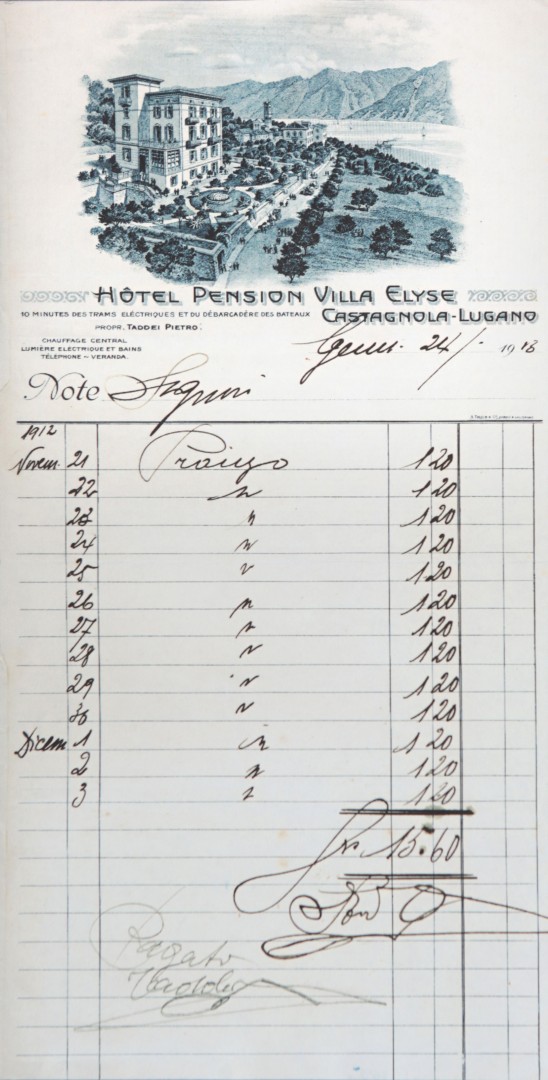 HÔTEL PENSION VILLA ELYSE
10 MINUTES DES TRAMS ELÉCTRIQUES ET DU DÉBARCADÈRE DES BATEAUX CASTAGNOLA-LUGANO
PROPR. TADDEI PIETRO.
CHAUFFAGE CENTRAL
LUMIÈRE ELÉCTRIQUE ET BAINS
TÉLÉPHONE ~ VERANDA.
24/ 1913
Note
1912
Novem. 21 Pranzo 1 20
22 " 1 20
23 " 1 20
24 " 1 20
25 " 1 20
26 " 1 20
27 " 1 20
28 " 1 20
29 " 1 20
30 " 1 20
Dicem 1 " 1 20
2 " 1 20
3 " 1 20
Fr. 15.60
Pagato